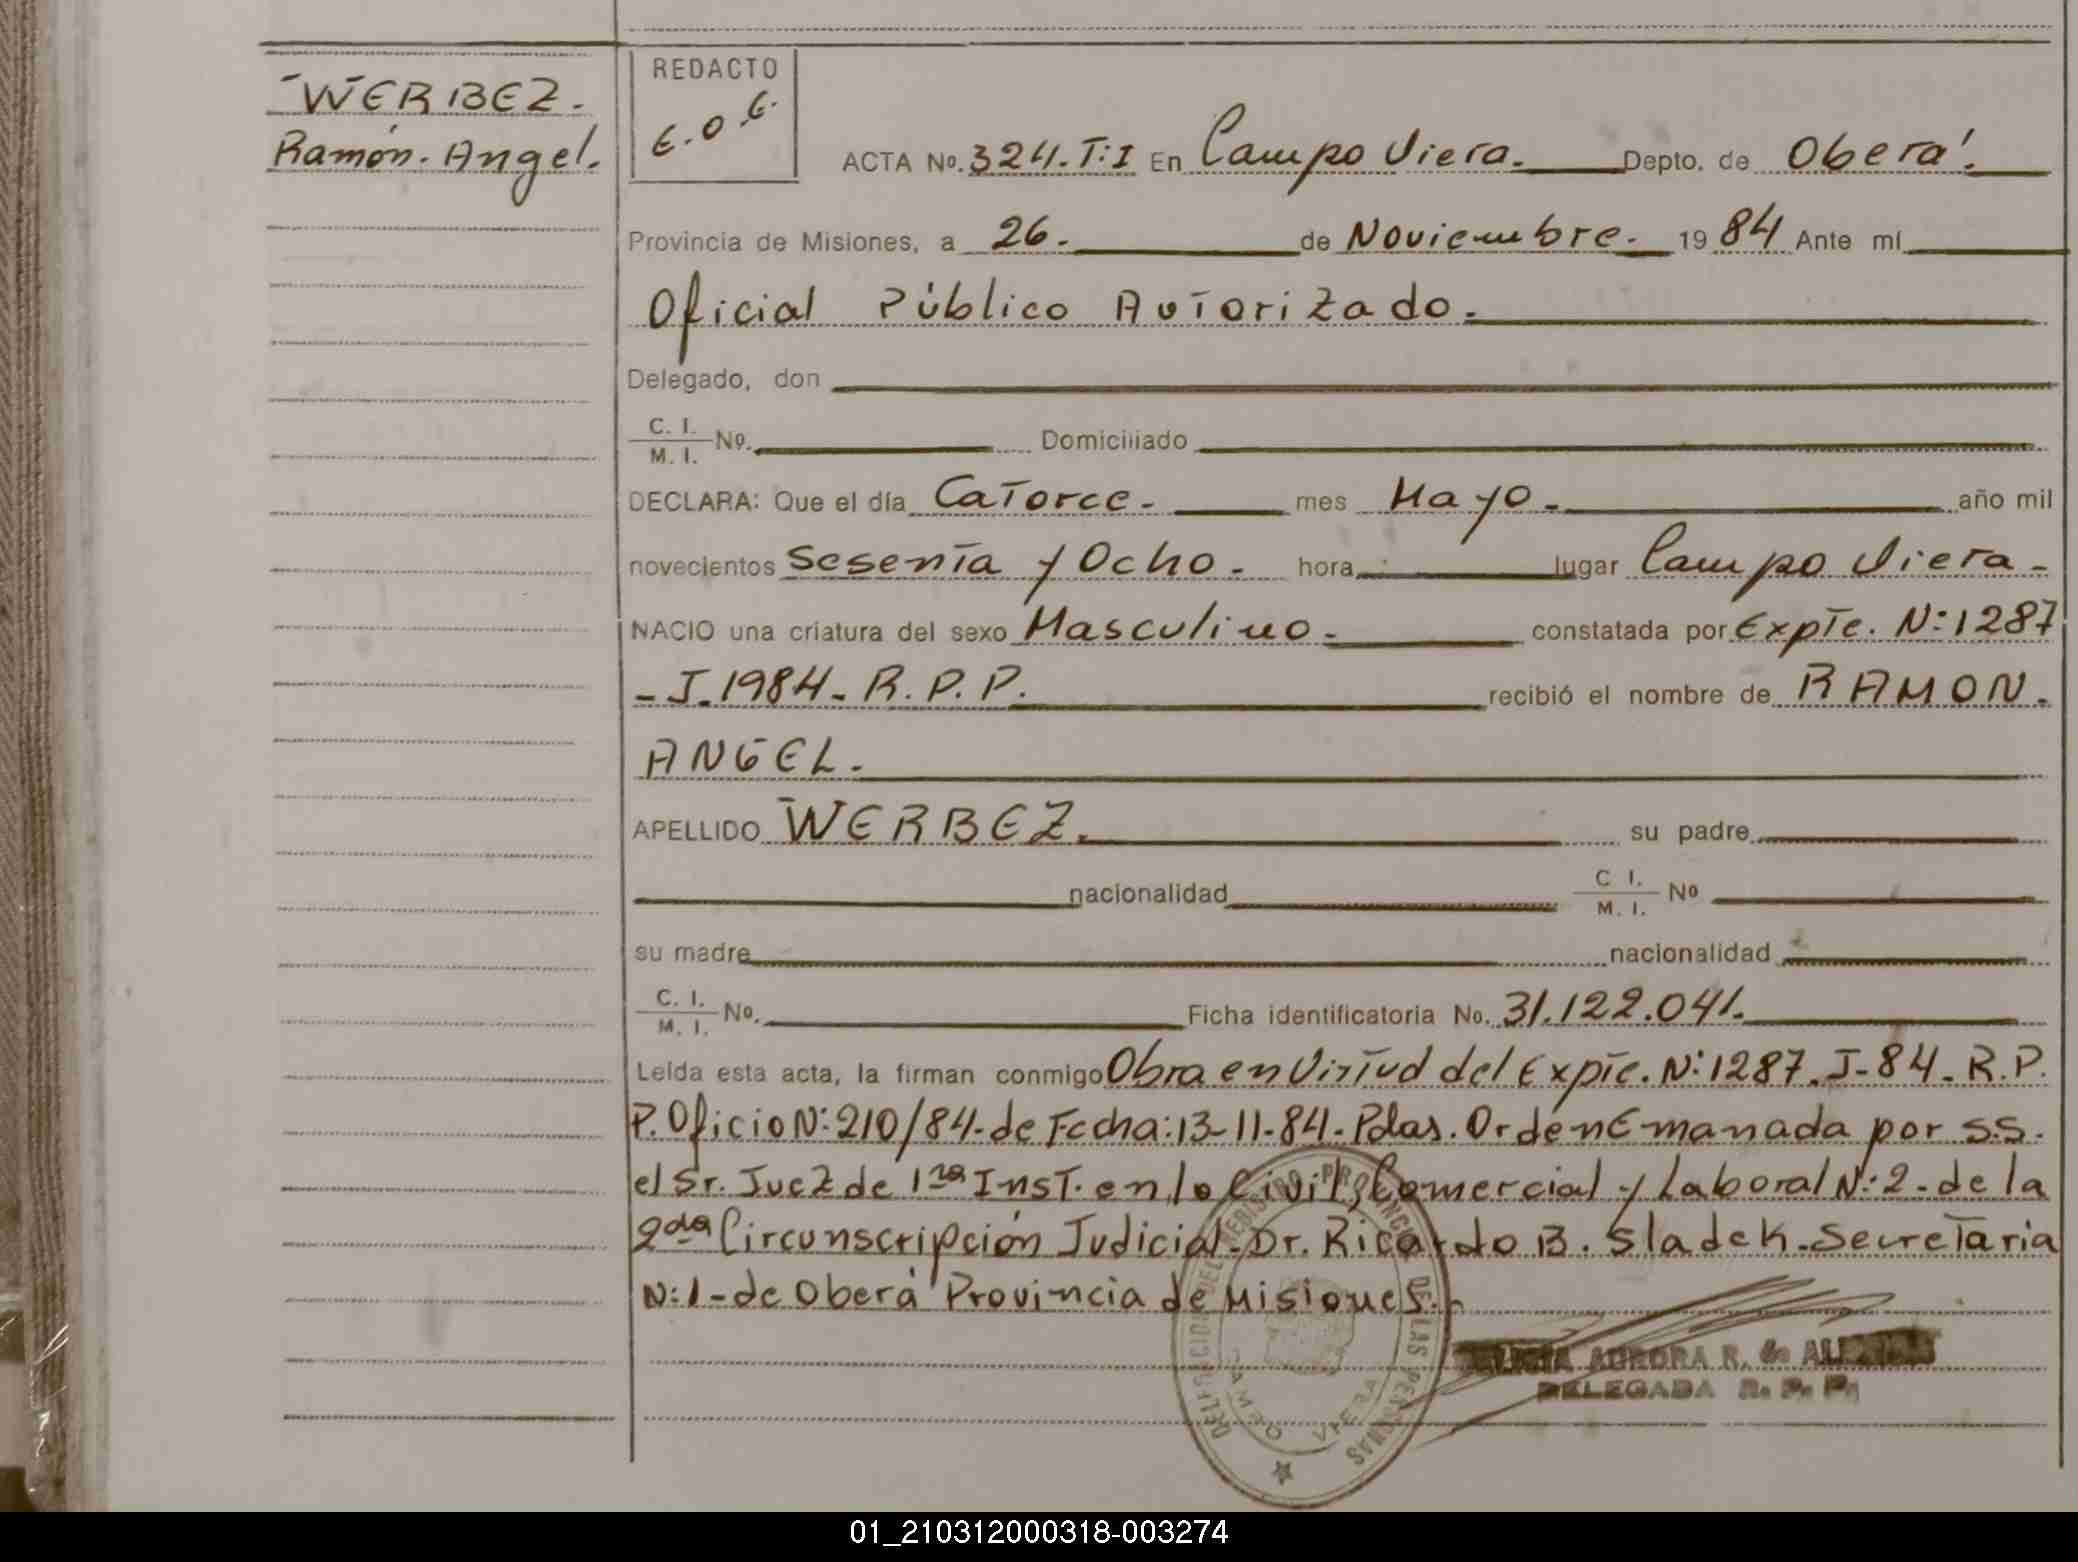 WERBEZ.
Ramón. Angel.
REDACTO
E.O.E.
ACTA No. 324. T:I En Campo Viera. Depto. de Oberá.
Provincia de Misiones, a 26. de Noviembre. 1984 Ante mí
Oficial Público Autorizado.
Delegado, don
C. I.
M. I. No. Domiciliado
DECLARA: Que el día Catorce. mes Mayo. año mil
novecientos Sesenta y Ocho. hora lugar Campo Viera.
NACIO una criatura del sexo Masculino. constatada por Expte. N:1287
-J-1984-R.P.P. recibió el nombre de RAMON.
ANGEL.
APELLIDO WERBEZ. su padre
nacionalidad C I.
M. I. No
su madre nacionalidad
C. I.
M. I. No. Ficha identificatoria No. 31.122.041.
Leída esta acta, la firman conmigo Obra en Virtud del Expte. N:1287.J-84-R.P.
P. Oficio N:210/84-de Fecha:13-11-84-Pdas. Orden Emanada por S.S.
el Sr. Juez de 1ra Inst. en lo Civil, Comercial y Laboral N:2-de la
2da Circunscripción Judicial-Dr. Ricardo B. Sladek-Secretaria
N:1-de Oberá Provincia de Misiones.
DELEGACION DEL REGISTRO PROVINCIAL DE LAS PERSONAS
CAMPO VIERA
AURORA R. de
DELEGADA R. P. P.
01_210312000318-003274